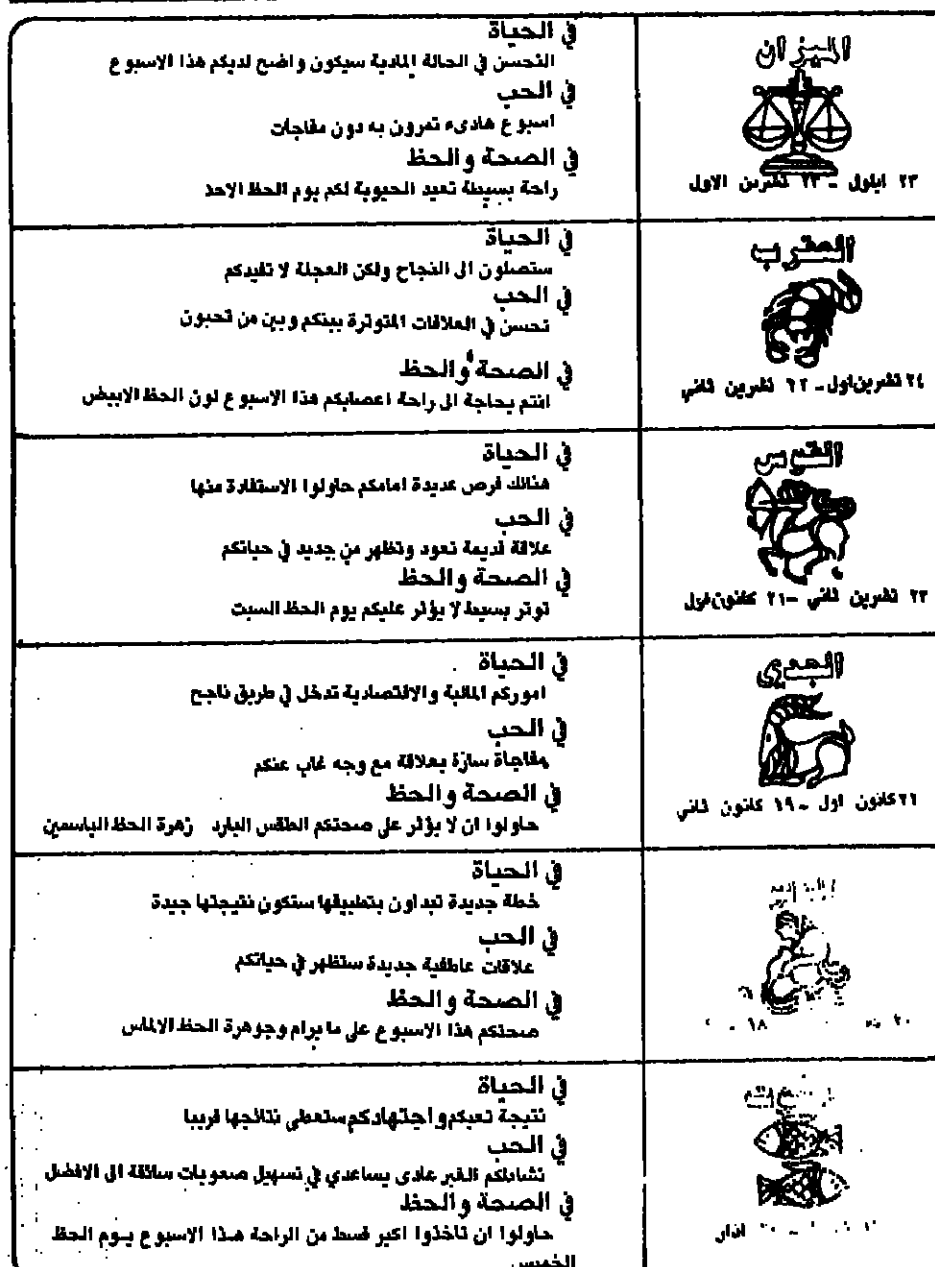 الميزان
٢٣ ايلول - ٢٣ تشرين الاول
في الحياة
التحسن في الحالة المادية سيكون واضح لديكم هذا الاسبوع
في الحب
اسبوع هادىء تمرون به دون مفاجات
في الصحة والحظ
راحة بسيطة تعيد الحيوية لكم يوم الحظ الاحد
العقرب
٢٤ تشرين اول - ٢٢ تشرين ثاني
في الحياة
ستصلون الى النجاح ولكن العجلة لا تفيدكم
في الحب
تحسن في العلاقات المتوترة بينكم وبين من تحبون
في الصحة والحظ
انتم بحاجة الى راحة اعصابكم هذا الاسبوع لون الحظ الابيض
القوس
٢٣ تشرين ثاني - ٢١ كانون اول
في الحياة
هنالك فرص عديدة امامكم حاولوا الاستفادة منها
في الحب
علاقة قديمة تعود وتظهر من جديد في حياتكم
في الصحة والحظ
توتر بسيط لا يؤثر عليكم يوم الحظ السبت
الجدي
٢١ كانون اول - ١٩ كانون ثاني
في الحياة
اموركم المالية والاقتصادية تدخل في طريق ناجح
في الحب
مفاجاة سارة بعلاقة مع وجه غاب عنكم
في الصحة والحظ
حاولوا ان لا يؤثر على صحتكم الطقس البارد زهرة الحظ الياسمين
٢٠ ١٨ -
في الحياة
خطة جديدة تبداون بتطبيقها ستكون نتيجتها جيدة
في الحب
علاقات عاطفية جديدة ستظهر في حياتكم
في الصحة والحظ
صحتكم هذا الاسبوع على ما يرام وجوهرة الحظ الالماس
اذار
في الحياة
نتيجة تعبكم واجتهادكم ستعطى نتائجها قريبا
في الحب
نشاطكم الغير عادى يساعدي في تسهيل صعوبات سائقة الى الافضل
في الصحة والحظ
حاولوا ان تاخذوا اكبر قسط من الراحة هذا الاسبوع يوم الحظ
الخميس